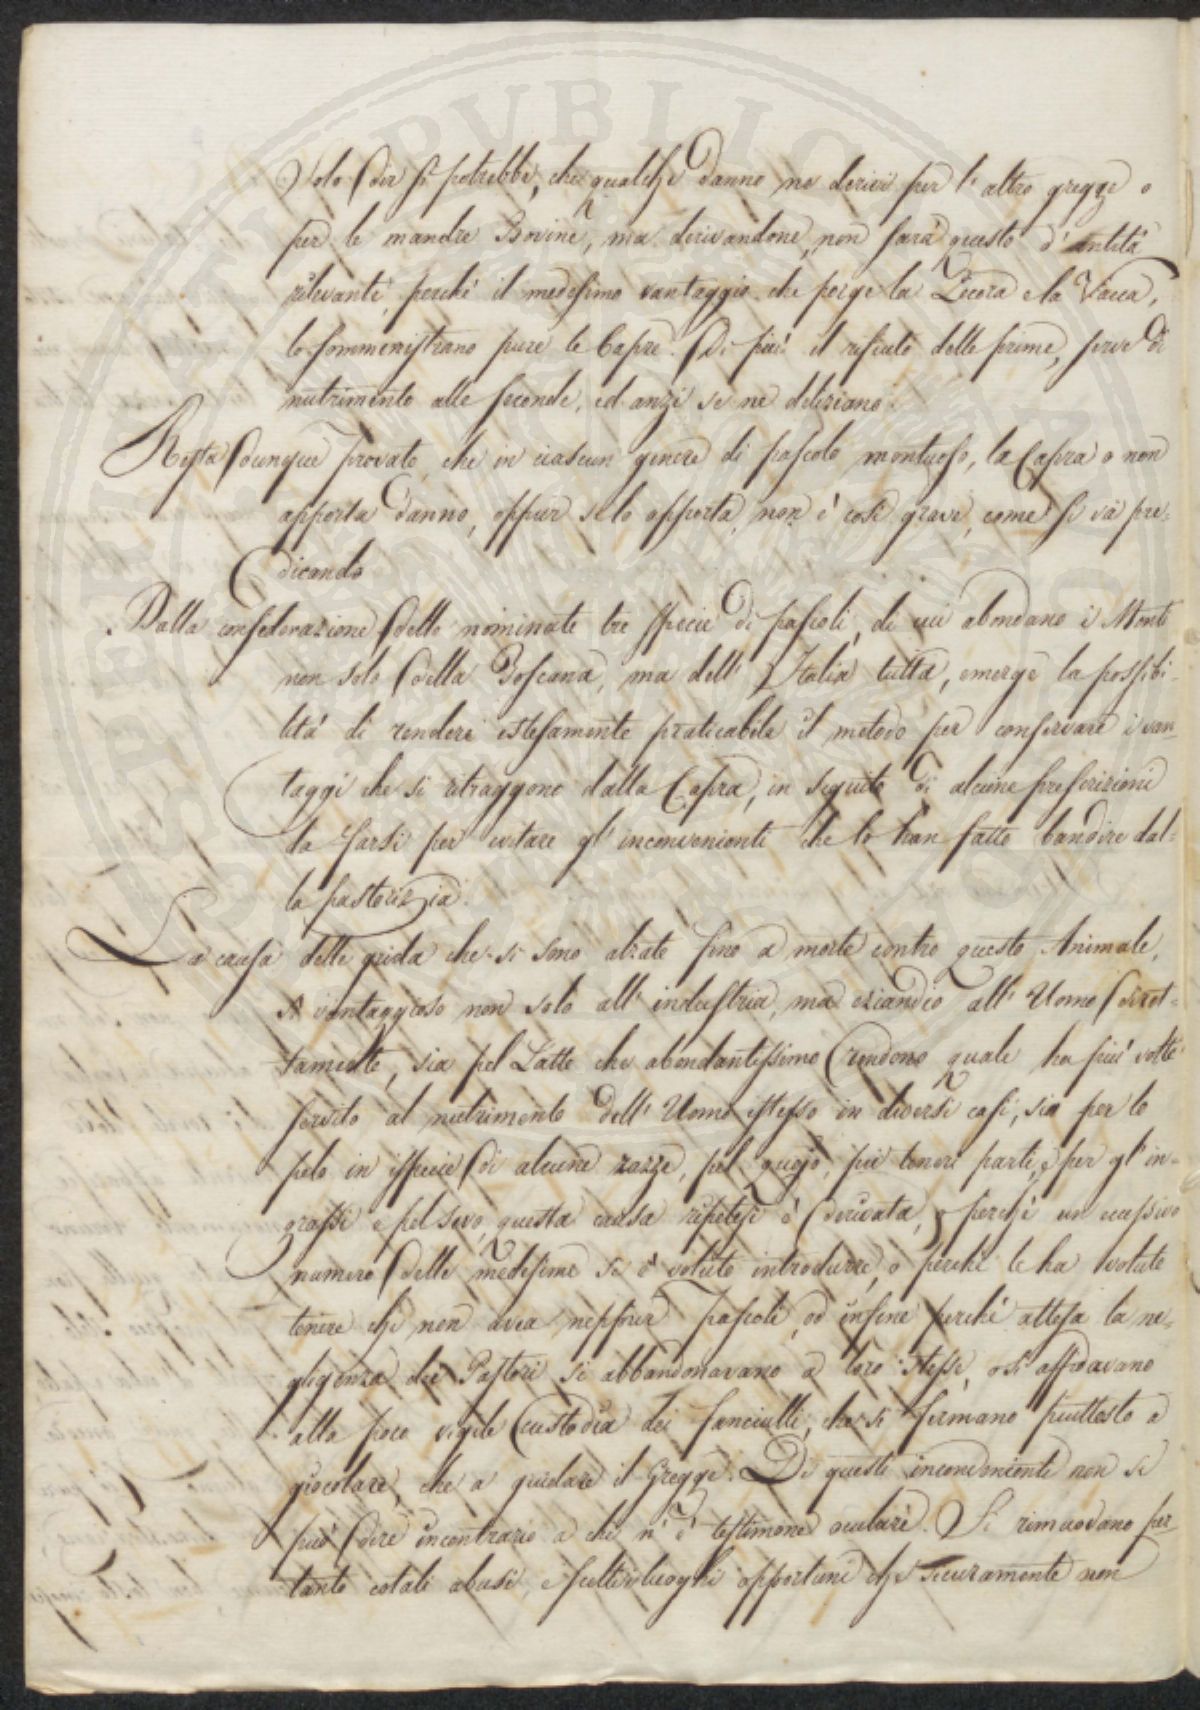 Solo dir si potrebbe, che qualche danno ne derivi per l'altro gregge o
per le mandre Bovine, ma derivandone, non sarà questo d'entità
rilevante, perchè il medesimo vantaggio che porge la Pecora e la Vacca,
lo somministrano pure le Capre. Di più il rifiuto delle prime, serve di
nutrimento alle seconde, ed anzi se ne deliziano.
Resta dunque provato, che in ciascun genere di pascolo montuoso, la Capra o non
apporta danno, oppur se lo apporta, non è così grave, come si và pre-
dicando
Dalla considerazione delle nominate tre specie di pascoli, di cui abondano i Monti
non solo della Toscana, ma dell'Italia tutta, emerge la possibi-
lità di rendere estesamente praticabile il metodo per conservare i van-
taggi che si ritraggono dalla Capra, in seguito di alcune prescrizioni
da farsi per evitare gl'inconvenienti che lo han fatto bandire dal-
la pastorizia.
La causa delle grida che si sono alzate fino a morte contro questo Animale,
sì vantaggioso non solo all'industria, ma eziandio all'Uomo diret-
tamente, sia pel Latte che abondantissimo rendono quale ha più volte
servito al nutrimento dell'Uomo istesso in diversi casi, sia per lo
pelo in ispecie di alcune razze, pel quojo, più tenere parti, e per gl'in-
grassi e pel sevo, questa causa ripetesi è derivata, o perchè un eccessivo
numero delle medesime si è voluto introdurre, o perchè le ha volute
tenere chi non avea neppur pascoli, od infine perchè attesa la ne-
gligenza dei Pastori si abbandonavano a loro stessi, o si affidavano
alla poco vigile custodia dei fanciulli, che si fermano piuttosto a
giocolare, che a guidare il Gregge. Di questi inconvenienti non si
può dire incontrario a chi n'è testimone oculare. Si rimuovano per
tanto cotali abusi, e luoghi opportuni che sicuramente non